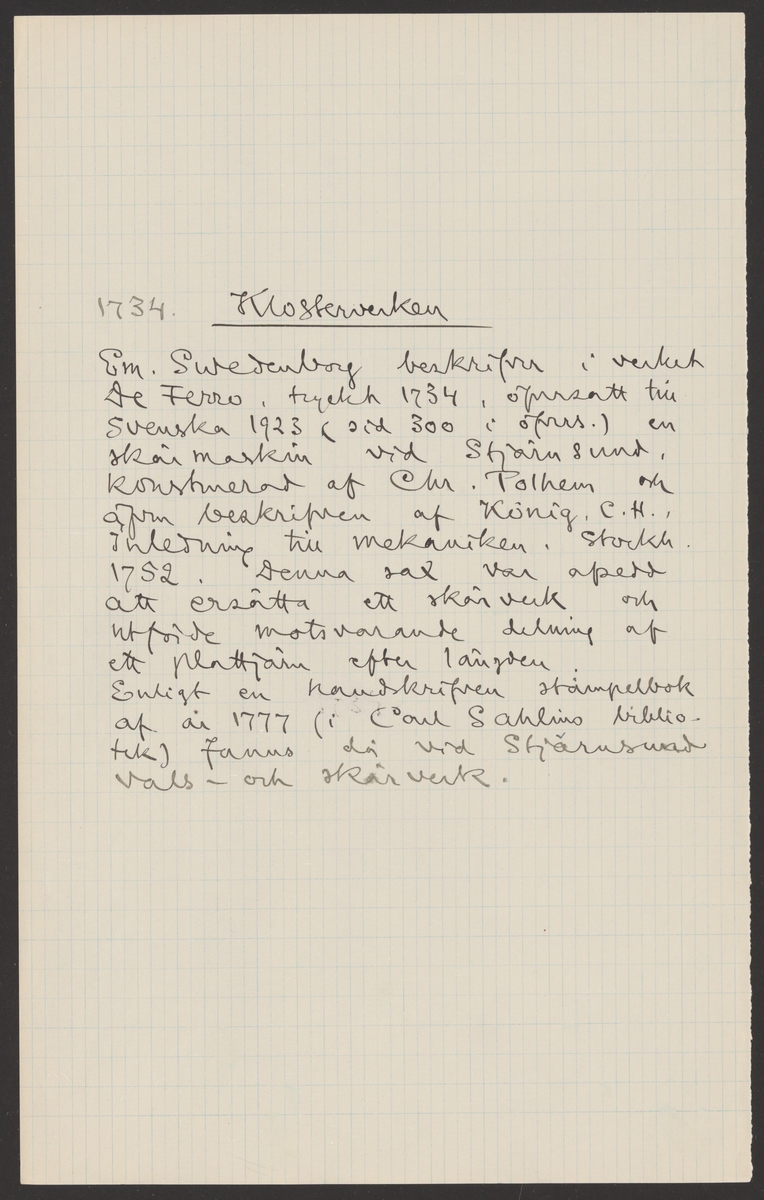 1734. Klosterverken
Em. Swedenborg beskrifver i verket
De Ferro, tryckt 1734, öfversatt till
Svenska 1923 (sid 300 i öfvers.) en
skärmaskin vid Stjärnsund,
konstruerad af Chr. Polhem och
äfven beskrifven af König, C.H.,
Inledning till mekaniken. Stockh.
1752. Denna sax var afsedd
att ersätta ett skärverk och
utförde motsvarande delning af
ett plattjärn efter längden.
Enligt en handskrifven stämpelbok
af år 1777 (i Carl Sahlins biblio-
tek) fanns då vid Stjärnsund
vals- och skärverk.